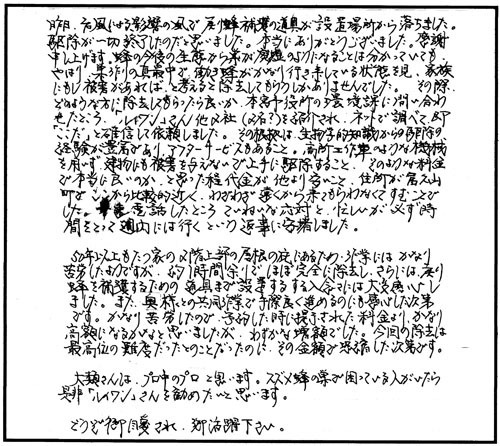 昨日、台風による影響の風で戻り蜂捕獲の道具が設置場所から落ちました。
駆除が一切終了したのだと思いました。本当にありがとうございました。感謝
申し上げます。蜂の今後の生態から巣が廃墟のようになることは分かっていても
やはり、巣作りの真最中で、働き蜂がかなり行き来している状態を見、家族
にもし被害があれば、と考えると除去してもらうしかありませんでした。その際、
どのような方に除去してもらったら良いか、本宮市役所の環境課に問い合わ
せたところ、「レイワン」さん他2社(の名前)を紹介され、ネットで調べて、即
「ここだ」と確信して依頼しました。その根拠は、生物学的知識からの駆除の
経験が豊富であり、アフターサービスもあること、高所工事車のような機械
を用いず、建物にも被害を与えないで上手に駆除すること、そのような料金
で本当に良いのか、と思った程代金が他より安いこと、住所が
町でここから比較的近く、わざわざ遠くから来てもらわなくてすむことで
した。電話したところていねいな応対と、忙しいが必ず時
間をとって週内には行くという返事に安堵しました。
50年以上もたつ家の2階上部の屋根の
苦労したようですが、約1時間余りでほぼ完全に除去し、さらには、戻り
蜂を捕獲するための道具まで設置する入念さには大変感心し
ました。また、奥様との共同作業で手際良く進めるのにも感心した次第
です。かなり苦労したので、予約した時に提示された料金より、かなり
高額になるかなと思いましたが、わずかな増額でした。今回の除去は
最高位の難度だったとのことだったのに、その金額で恐縮した次第です。
大類さんは、プロ中のプロと思います。スズメ蜂の巣で困っている人がいたら
是非「レイワン」さんを勧めたいと思います。
どうぞ御自愛され、御活躍下さい。